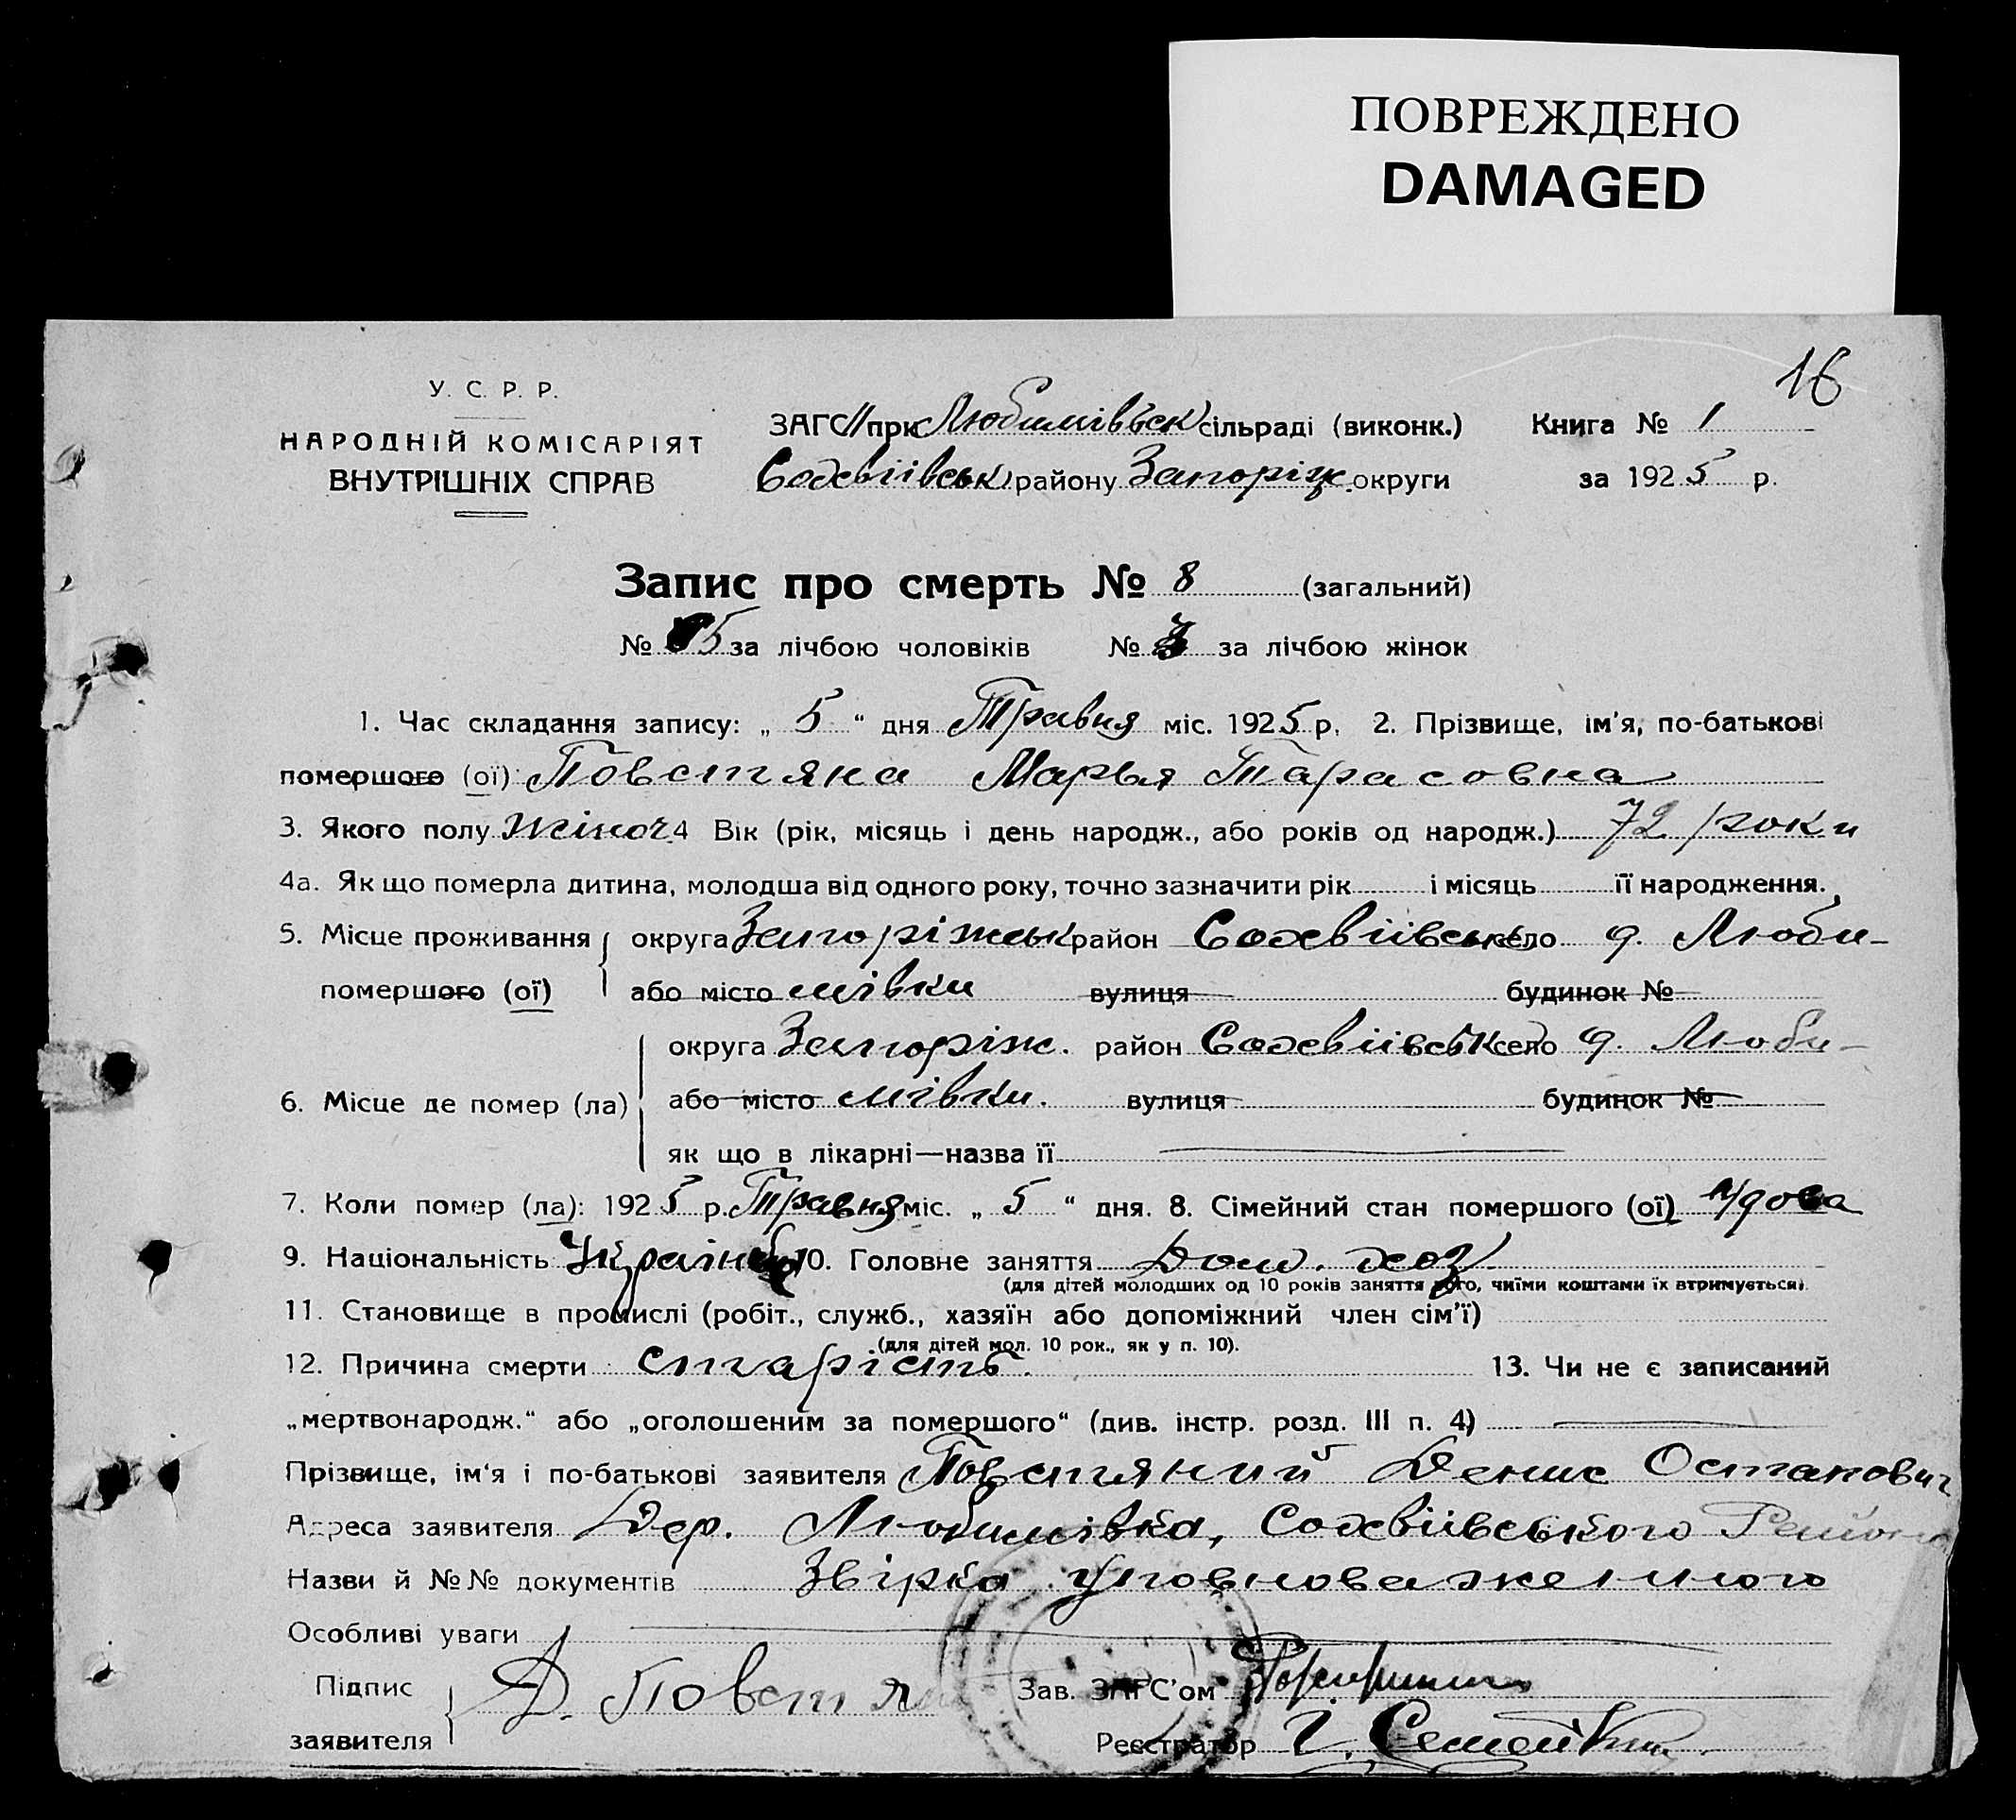 ПОВРЕЖДЕНО
DAMAGED
16
У. С. Р. Р.
НАРОДНІЙ КОМІСАРІЯТ
ВНУТРІШНІХ СПРАВ
ЗАГС при Любимівськ сільраді (виконк.) Книга № 1
Софвіівськ району Запоріж. округи за 1925 р.
Запис про смерть № 8 (загальний)
№ 5 за лічбою чоловіків № 3 за лічбою жінок
1. Час складання запису: „ 5 “ дня Травня міс. 1925 р. 2. Прізвище, ім'я, по-батькові
помершого (ої): Повстяна Марья Тарасовна
3. Якого полу жіноч. 4 Вік (рік, місяць і день народж., або років од народж.) 72 роки
4а. Як що померла дитина, молодша від одного року, точно зазначити рік і місяць її народження.
5. Місце проживання округа Запоріжськ район Софвіівськ село д. Люби-
помершого (ої) або місто мівки вулиця будинок №
округа Запоріж. район Софвіівськ село д. Люби-
6. Місце де помер (ла) або місто мівки. вулиця будинок №
як що в лікарні—назва її
7. Коли помер (ла): 1925 р. Травня міс. „ 5 “ дня. 8. Сімейний стан помершого (ої) удова
9. Національність 10. Головне заняття Дом. хоз.
(для дітей молодших од 10 років заняття того, чиїми коштами їх втримується).
11. Становище в промислі (робіт., служб., хазяїн або допоміжний член сім'ї)
(для дітей мол. 10 рок., як у п. 10).
12. Причина смерти старість. 13. Чи не є записаний
„мертвонародж.“ або „оголошеним за помершого“ (див. інстр. розд. III п. 4)
Прізвище, ім'я і по-батькові заявителя Повстяний Денис Остапович
Адреса заявителя Дер. Любимівка, Софвіівського Району
Назви й №№ документів Звірка уповноваженного
Особливі уваги
Підпис Д. Повстя Зав. ЗАГС'ом
заявителя Реєстратор